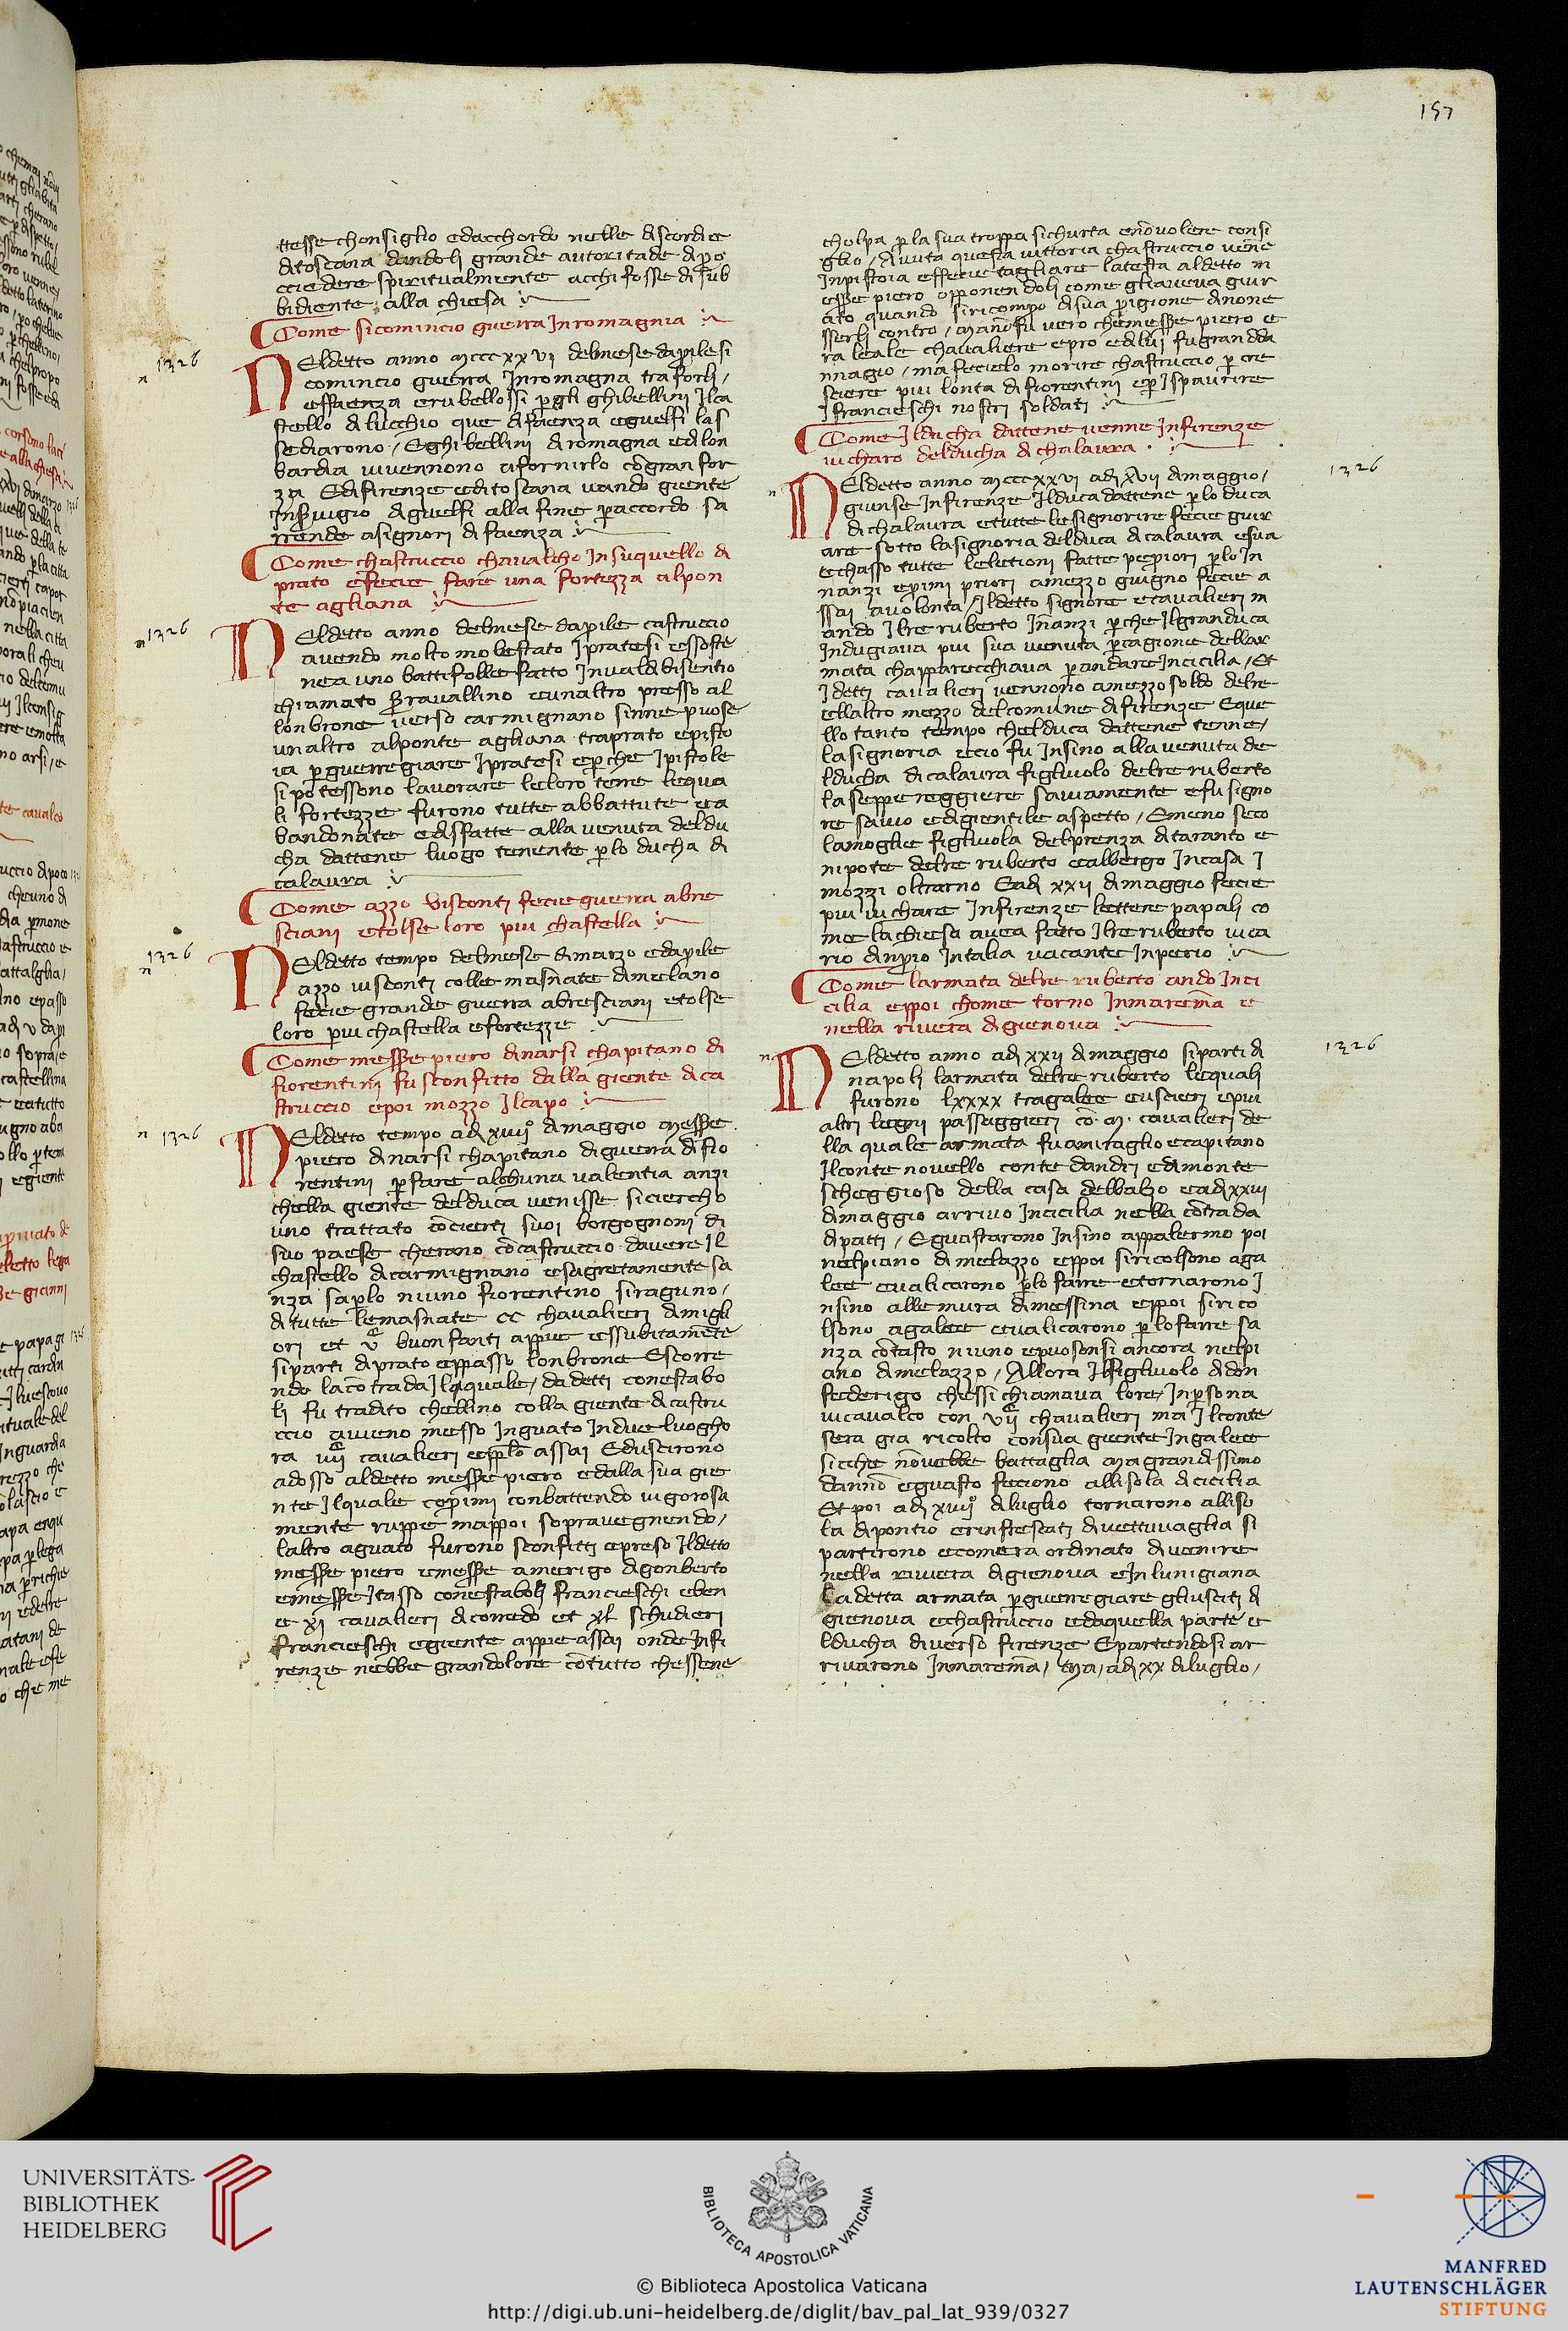 157
ttesse chonsiglio edacchordo nelle discordie
ditoscana dandoli grande autoritade dipo
cciedere spiritualmente acchi fosse disub
bidiente alla chiesa
Come sicomincio guerra Inromagnia
1326
n
NEldetto anno mcccxxvi delmese daprile si
comincio guerra Inromagna tra forli /
effaenza erubellossi pgli ghibellini Ilca
stello di lucchio que difaenza eguelfi las
sediarono / Eghibellini diromagna edilon
bardia vivennono afornirlo cogran for
za Edifirenze editoscana uando giente
Inservigio diguelfi alla fine paccordo sa
rrende asignori di faenza
Come chastruccio chavalcho Insuquello di
prato efecie fare una fortezza alpon
te agliana
n 1326
NEldetto anno delmese daprile castruccio
avendo molto molestato Ipratesi essoste
nea uno battifolle fatto Invaldibisentio
chiamato Seravallino eunaltro presso al
lonbrone verso carmignano sinne puose
unaltro alponte agliana traprato episto
ia pguerregiare Ipratesi epche Ipistole
si potessono lavorare leloro terre lequa
li fortezze furono tutte abbattute ea
bandonate edisfatte alla venuta deldu
cha dattene luogo tenente plo ducha di
calaura
Come azzo Visconti fecie guerra abre
sciani etolse loro piu chastella
1326
n
NEldetto tempo delmese dimarzo edaprile
azzo visconti colle masnate dimelano
fecie grande guerra abresciani etolse
loro piu chastella efortezze
Come messere piero dinarsi chapitano di
fiorentini fu sconfitto dalla giente dica
struccio epoi mozzo Ilcapo
n 1326
NEldetto tempo adi xiiii dimaggio messere
piero dinarsi chapitano diguerra di fio
rentini pfare alchuna valentia anzi
chella giente delduca venisse si ciercho
uno trattato cocierti suoi borgognoni di
suo paese cherano cocastruccio davere Il
chastello dicarmignano esagretamente sa
nza saplo niuno fiorentino siraguno /
di tutte lemasnate cc chavalieri dimigli
ori et vc buon fanti appie essubitamente
siparti diprato eppasso lonbrone Escorre
ndo lacotrada Ilquale / dadetti conestabo
li fu tradito chellino colla giente dicastru
ccio aveno messo Inguato Indue luogho
ra viiic cavalieri epoplo assai Eduscirono
adosso aldetto messere piero edalla sua gie
nte Ilquale coprimi conbattendo vigorosa
mente ruppe mappoi sopravegnendo /
laltro aguato furono sconfitti epreso Ildetto
messere piero emessere amerigo digonberto
emessere Itasso conestaboli francieschi eben
e xi cavalieri dicorredo et xl schudieri
francieschi egiente appie assai onde Infi
renze nebbe grandolore cotutto chessene
cholpa pla sua troppa sichurta enovolere consi
glio / Avuta questa vittoria chastruccio venne
Inpistoia effecie tagliare latesta aldetto m
essere piero opponendoli come gliaveva giur
ato quando siricompo disua prigione dinone
sserli contro / manofu vero chemessere piero e
ra leale chavaliere epro edilui fugrandda
nnagio / ma fecielo morire chastruccio p cre
sciere piu lonta di fiorentini ep Ispaurire
Ifrancieschi nostri soldati
Come Ilducha dattene venne Infirenze
vicharo delducha di chalaura
1326
n
NEldetto anno mcccxxvi adi xvii dimaggio /
giunse Infirenze Ilduca dattene plo duca
di chalaura etutte lesignorire fecie giur
are sotto lasignoria delduca dicalaura esua
echasso tutte lelectioni fatte pepriori plo In
nanzi eprimi priori amezzo giugno fecie a
ssai avolonta / Ildetto signore ecavalieri m
ando Ilre ruberto Inanzi pche Ilgranduca
Indugiava piu sua venuta pcagione dellar
mata chapparecchiava pandare Incicilia / Et
Idetti cavalieri vennono amezzo soldo delre
ellaltro mezzo delcomune difirenze Eque
llo tanto tempo chelduca dattene tenne /
lasignoria ecio fu Insino alla venuta de
lducha dicalaura figliuolo delre ruberto
laseppe reggiere saviamente efu signo
re savio edigientile aspetto / Emeno seco
lamoglie figliuola delprenza ditaranto e
nipote delre ruberto ealbergo Incasa I
mozzi oltrarno Eadi xxii dimaggio fecie
piu vichare Infirenze lettere papali co
me lachiesa avea fatto Ilre ruberto vica
rio dinperio Intalia vacante Inperio
Come larmata delre ruberto ando Inci
cilia eppoi chome torno Inmarema e
nella rivera digienova
1326
n
NEldetto anno adi xxii dimaggio siparti di
napoli larmata delre ruberto lequali
furono lxxxx tragalee euscieri epiu
altri legni passaggieri co m cavalieri de
lla quale armata fu amiraglio ecapitano
Ilconte novello conte dandri edimonte
scheggioso della casa delbalzo eadi xxiii
dimaggio arrivo Incicilia nella contrada
dipatti / Eguastarono Insino appalermo poi
nelpiano dimelazzo eppoi siricolsono aga
lee evalicarono plo farre etornarono I
nsino allemura dimessina eppoi sirico
lsono agalee evalicarono plofarre sa
nza contasto niuno epuosensi ancora nelpi
ano dimelazzo / Allora Ilfigliuolo didon
federigo chessi chiamava lore / Inpersona
vicavalco con viic chavalieri ma Ilconte
sera gia ricolto consua giente Ingalee
sicche novebbe battaglia ma grandissimo
danno eguasto feciono allisola dicicilia
Et poi adi xiiii diluglio tornarono alliso
la dipontio erinfrescati divettuvaglia si
partirono ecomera ordinato divenire
nella rivera digienova eInlunigiana
La detta armata pguerregiare gliusciti di
gienova echastruccio edaquella parte e
lducha diverso firenze Epartendosi ar
rivarono Inmarema / Ma / adi xx diluglio /
UNIVERSITÄTS-
BIBLIOTHEK
HEIDELBERG
BIBLIOTECA APOSTOLICA VATICANA
© Biblioteca Apostolica Vaticana
http://digi.ub.uni-heidelberg.de/diglit/bav_pal_lat_939/0327
MANFRED
LAUTENSCHLÄGER
STIFTUNG